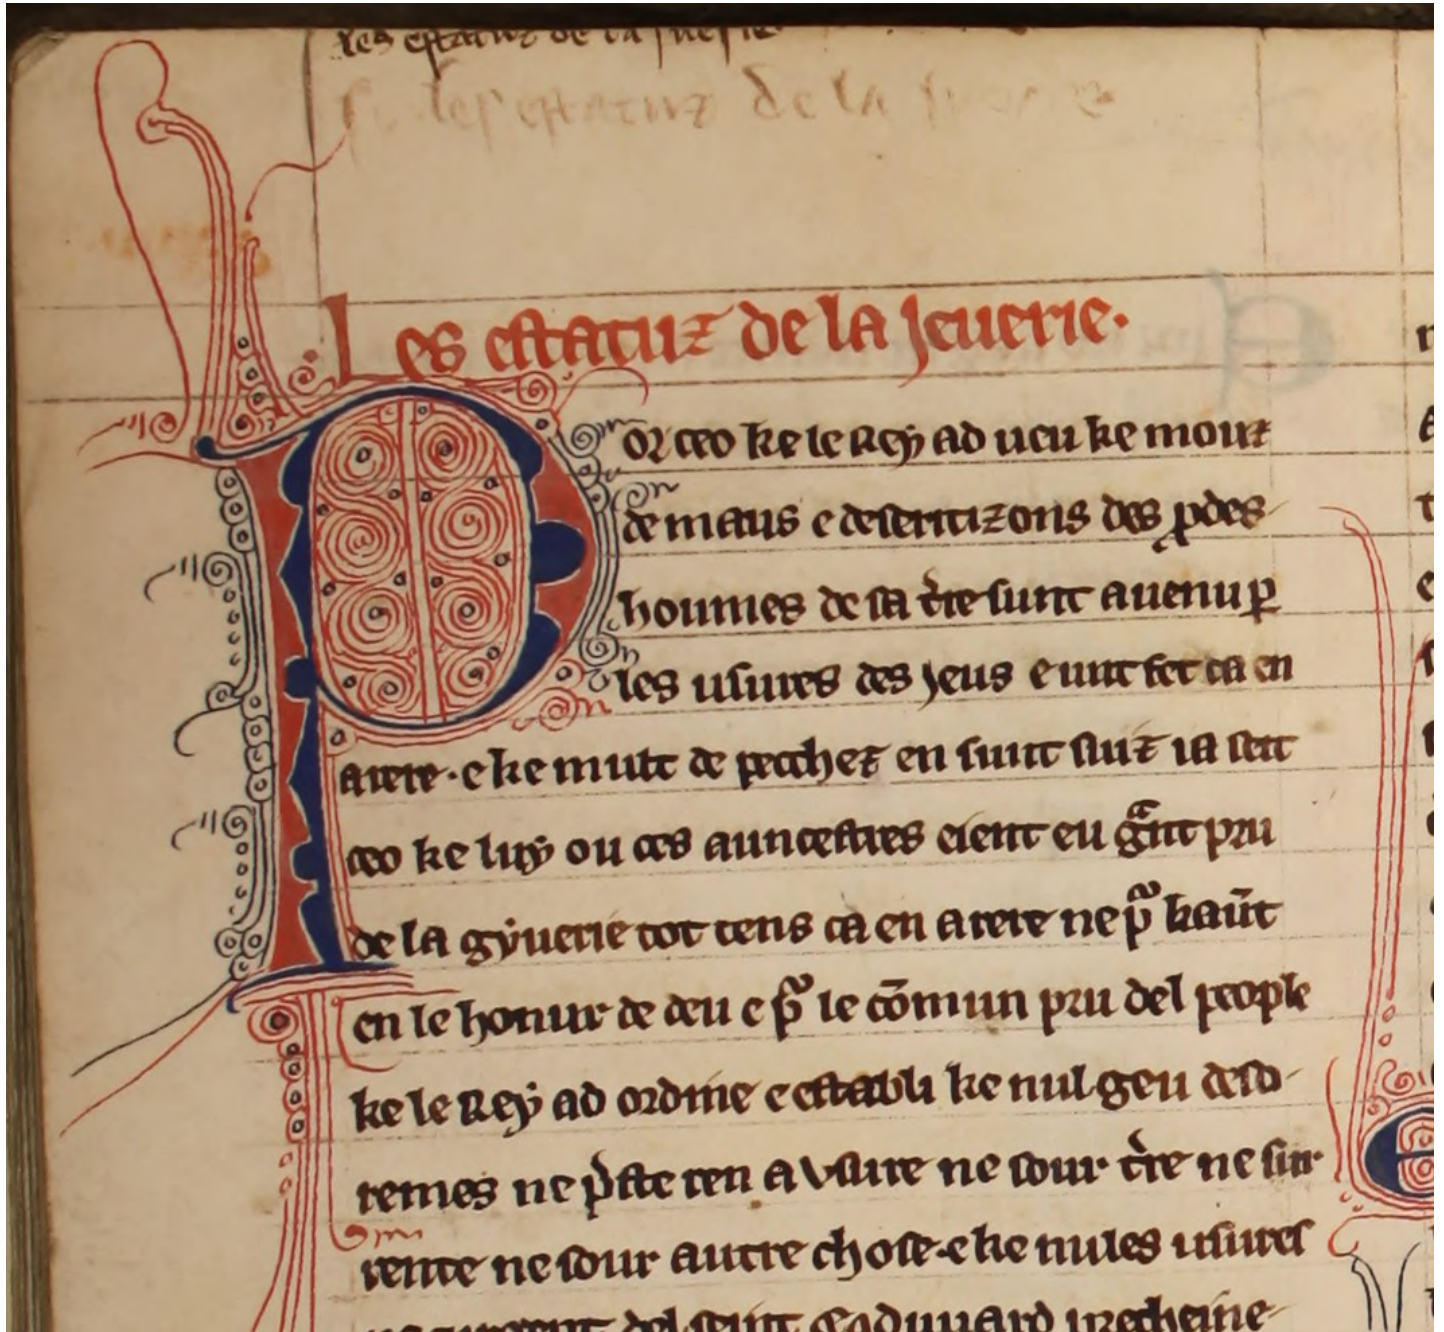 les estatuz de la juerie
les estatuz de la juerie
Les estatuz de la Jeuerie.
Por ceo ke le Rey ad ueu ke mouz
de maus e deseritizons des ꝓdes
houmes de sa t̉re sunt auenu ꝑ
les usures des Jeus e unt fet ca en
arere · e ke mult de pecchez en sunt siuz ia seit
ceo ke luy ou ces auncestres eient eu gͣnt pru
de la gẏuerie tot tens ca en arere ne pͣ kaūt
en le honur de deu e pͣ le cōmun pru del people
ke le Rey ad ordine e establi ke nul geu deso
remes ne p̉ste ren a vsure ne sour t̉re ne sur
rente ne sour autre chose · e ke nules usures
del seint Edduuard procheine